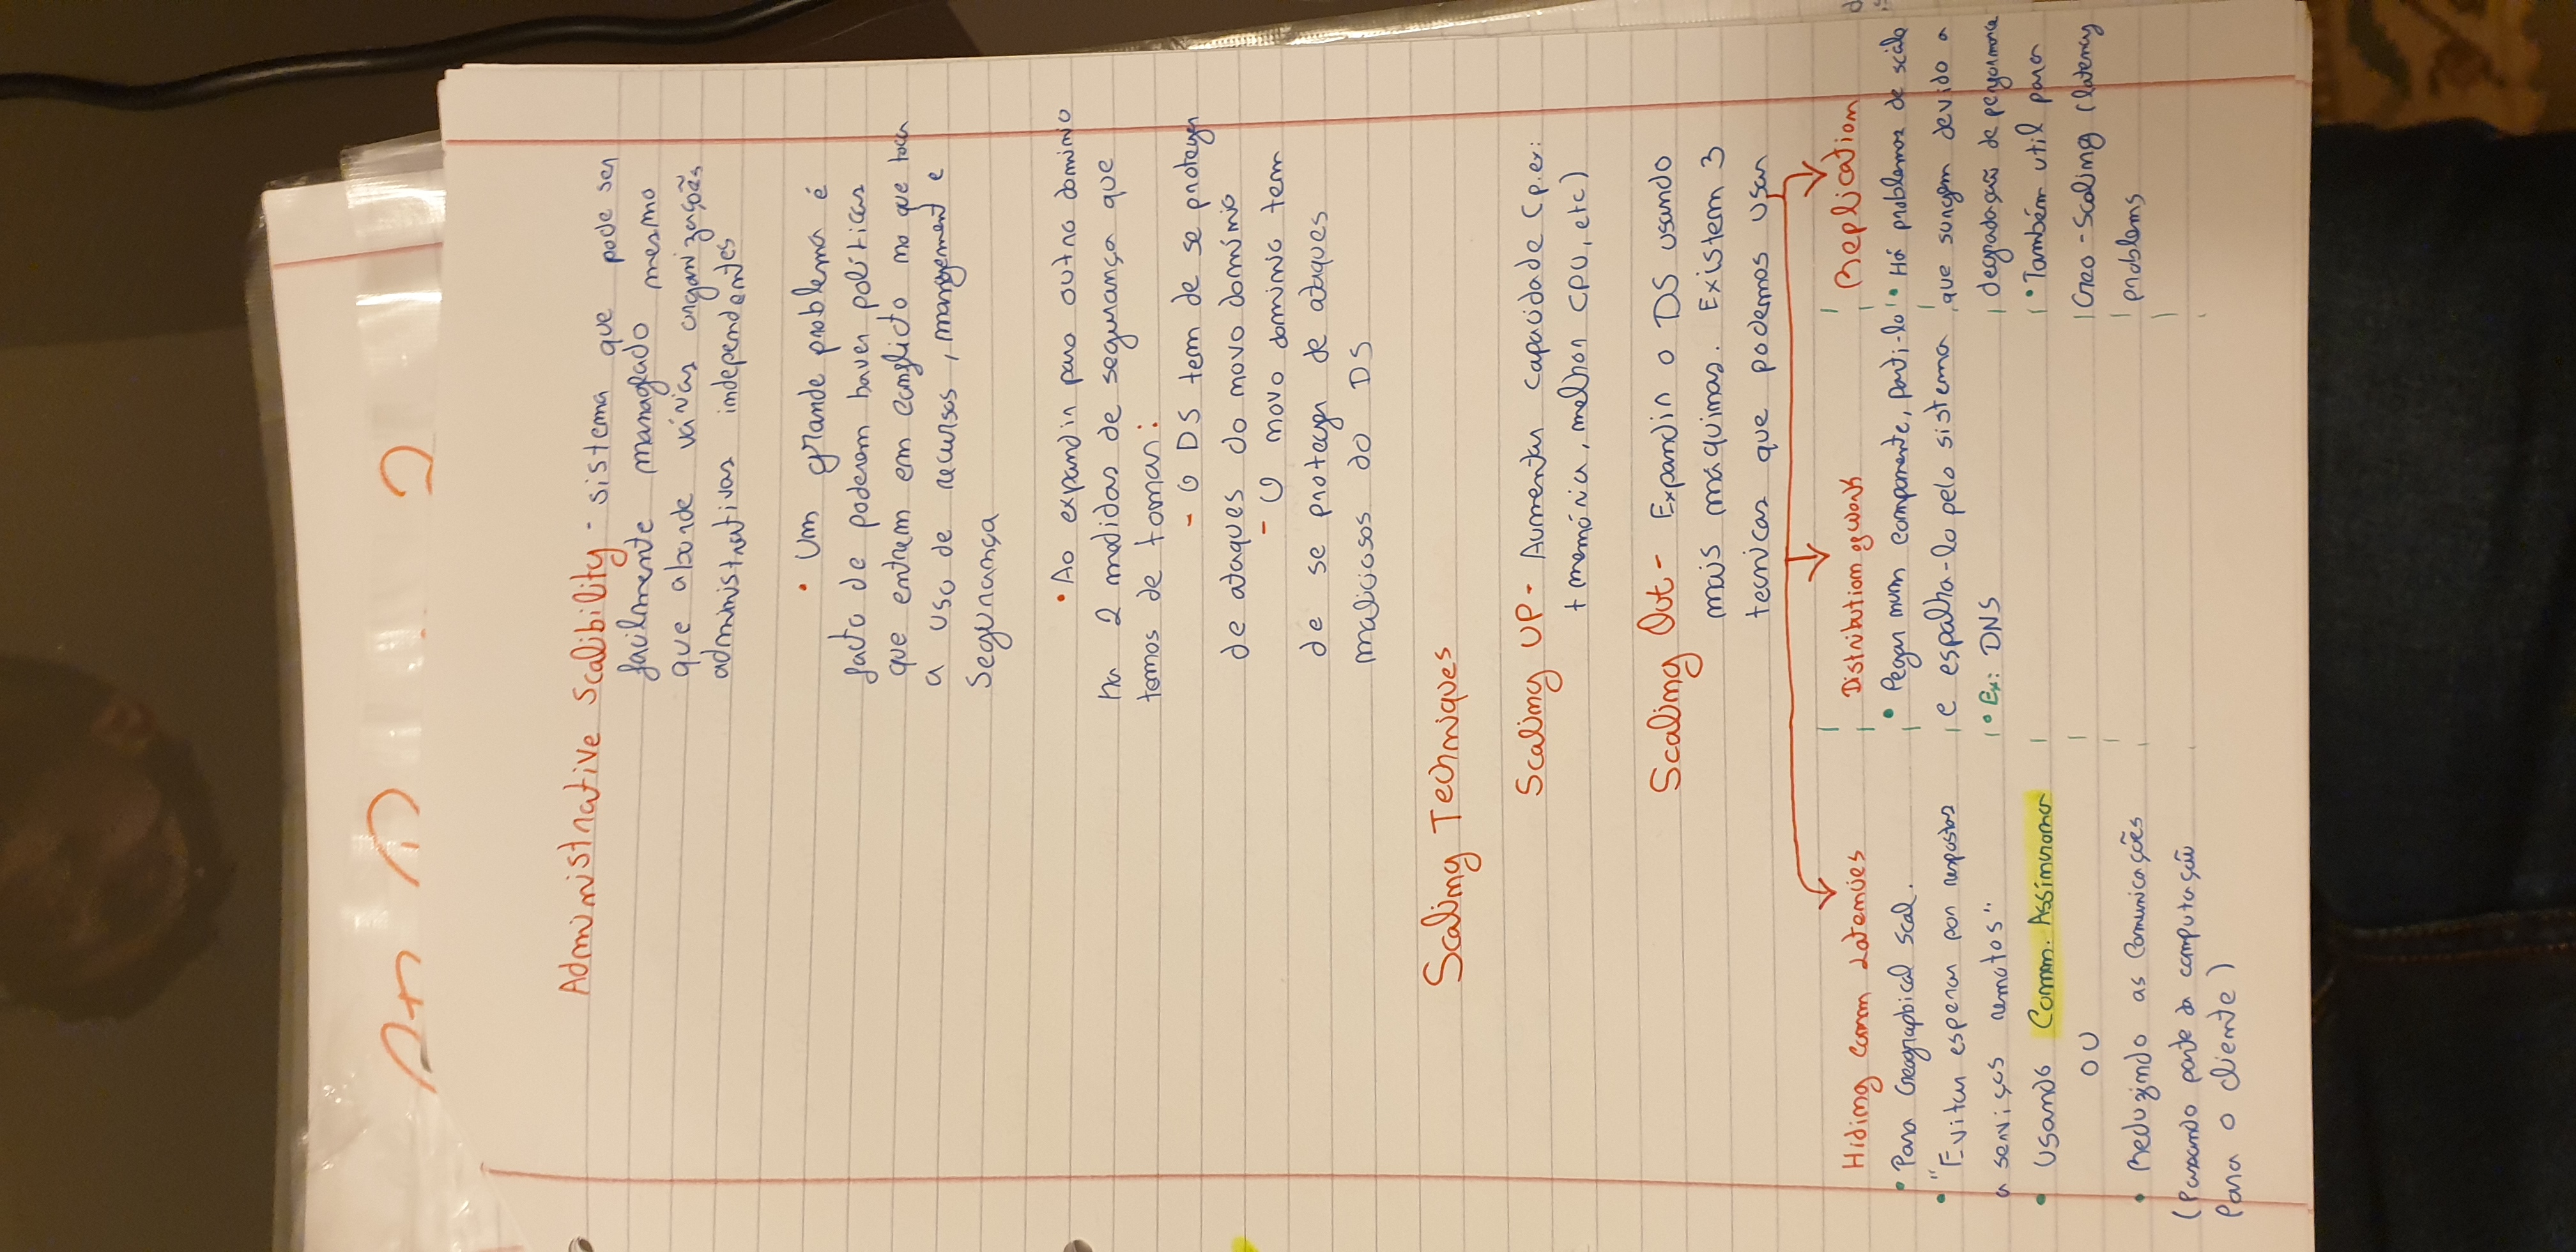 Administrative Scalibility - sistema que pode ser
facilmente manageado mesmo
que aborde várias organizações
administrativas independentes
• Um grande problema é
facto de poderem haver políticas
que entrem em conflicto no que toca
a uso de recursos, management e
Segurança
• Ao expandir para outro dominio
ha 2 medidas de segurança que
temos de tomar:
- O DS tem de se proteger
de ataques do novo domínio
- O novo dominio tem
de se proteger de ataques
maliciosos do DS
Scaling Techniques
Scaling UP - Aumentar capacidade (p.ex:
+ memória, melhor CPU, etc)
Scaling Out - Expandir o DS usando
mais máquinas. Existem 3
tecnicas que podemos usar
Hiding Comm Latencies
• Para Geographical Scal.
• "Evitar esperar por respostas
a serviços remotos"
• Usando Comm. Assincrona
OU
• Reduzindo as Comunicações
(Passando parte da computação
Para o cliente)
Distribution of Work
• Pegar num componente, parti-lo
e espalha-lo pelo sistema
• Ex: DNS
Replication
• Há problemas de scala
que surgem devido a
degradação de performance
• Também util para
Geo-Scaling (latency
problems